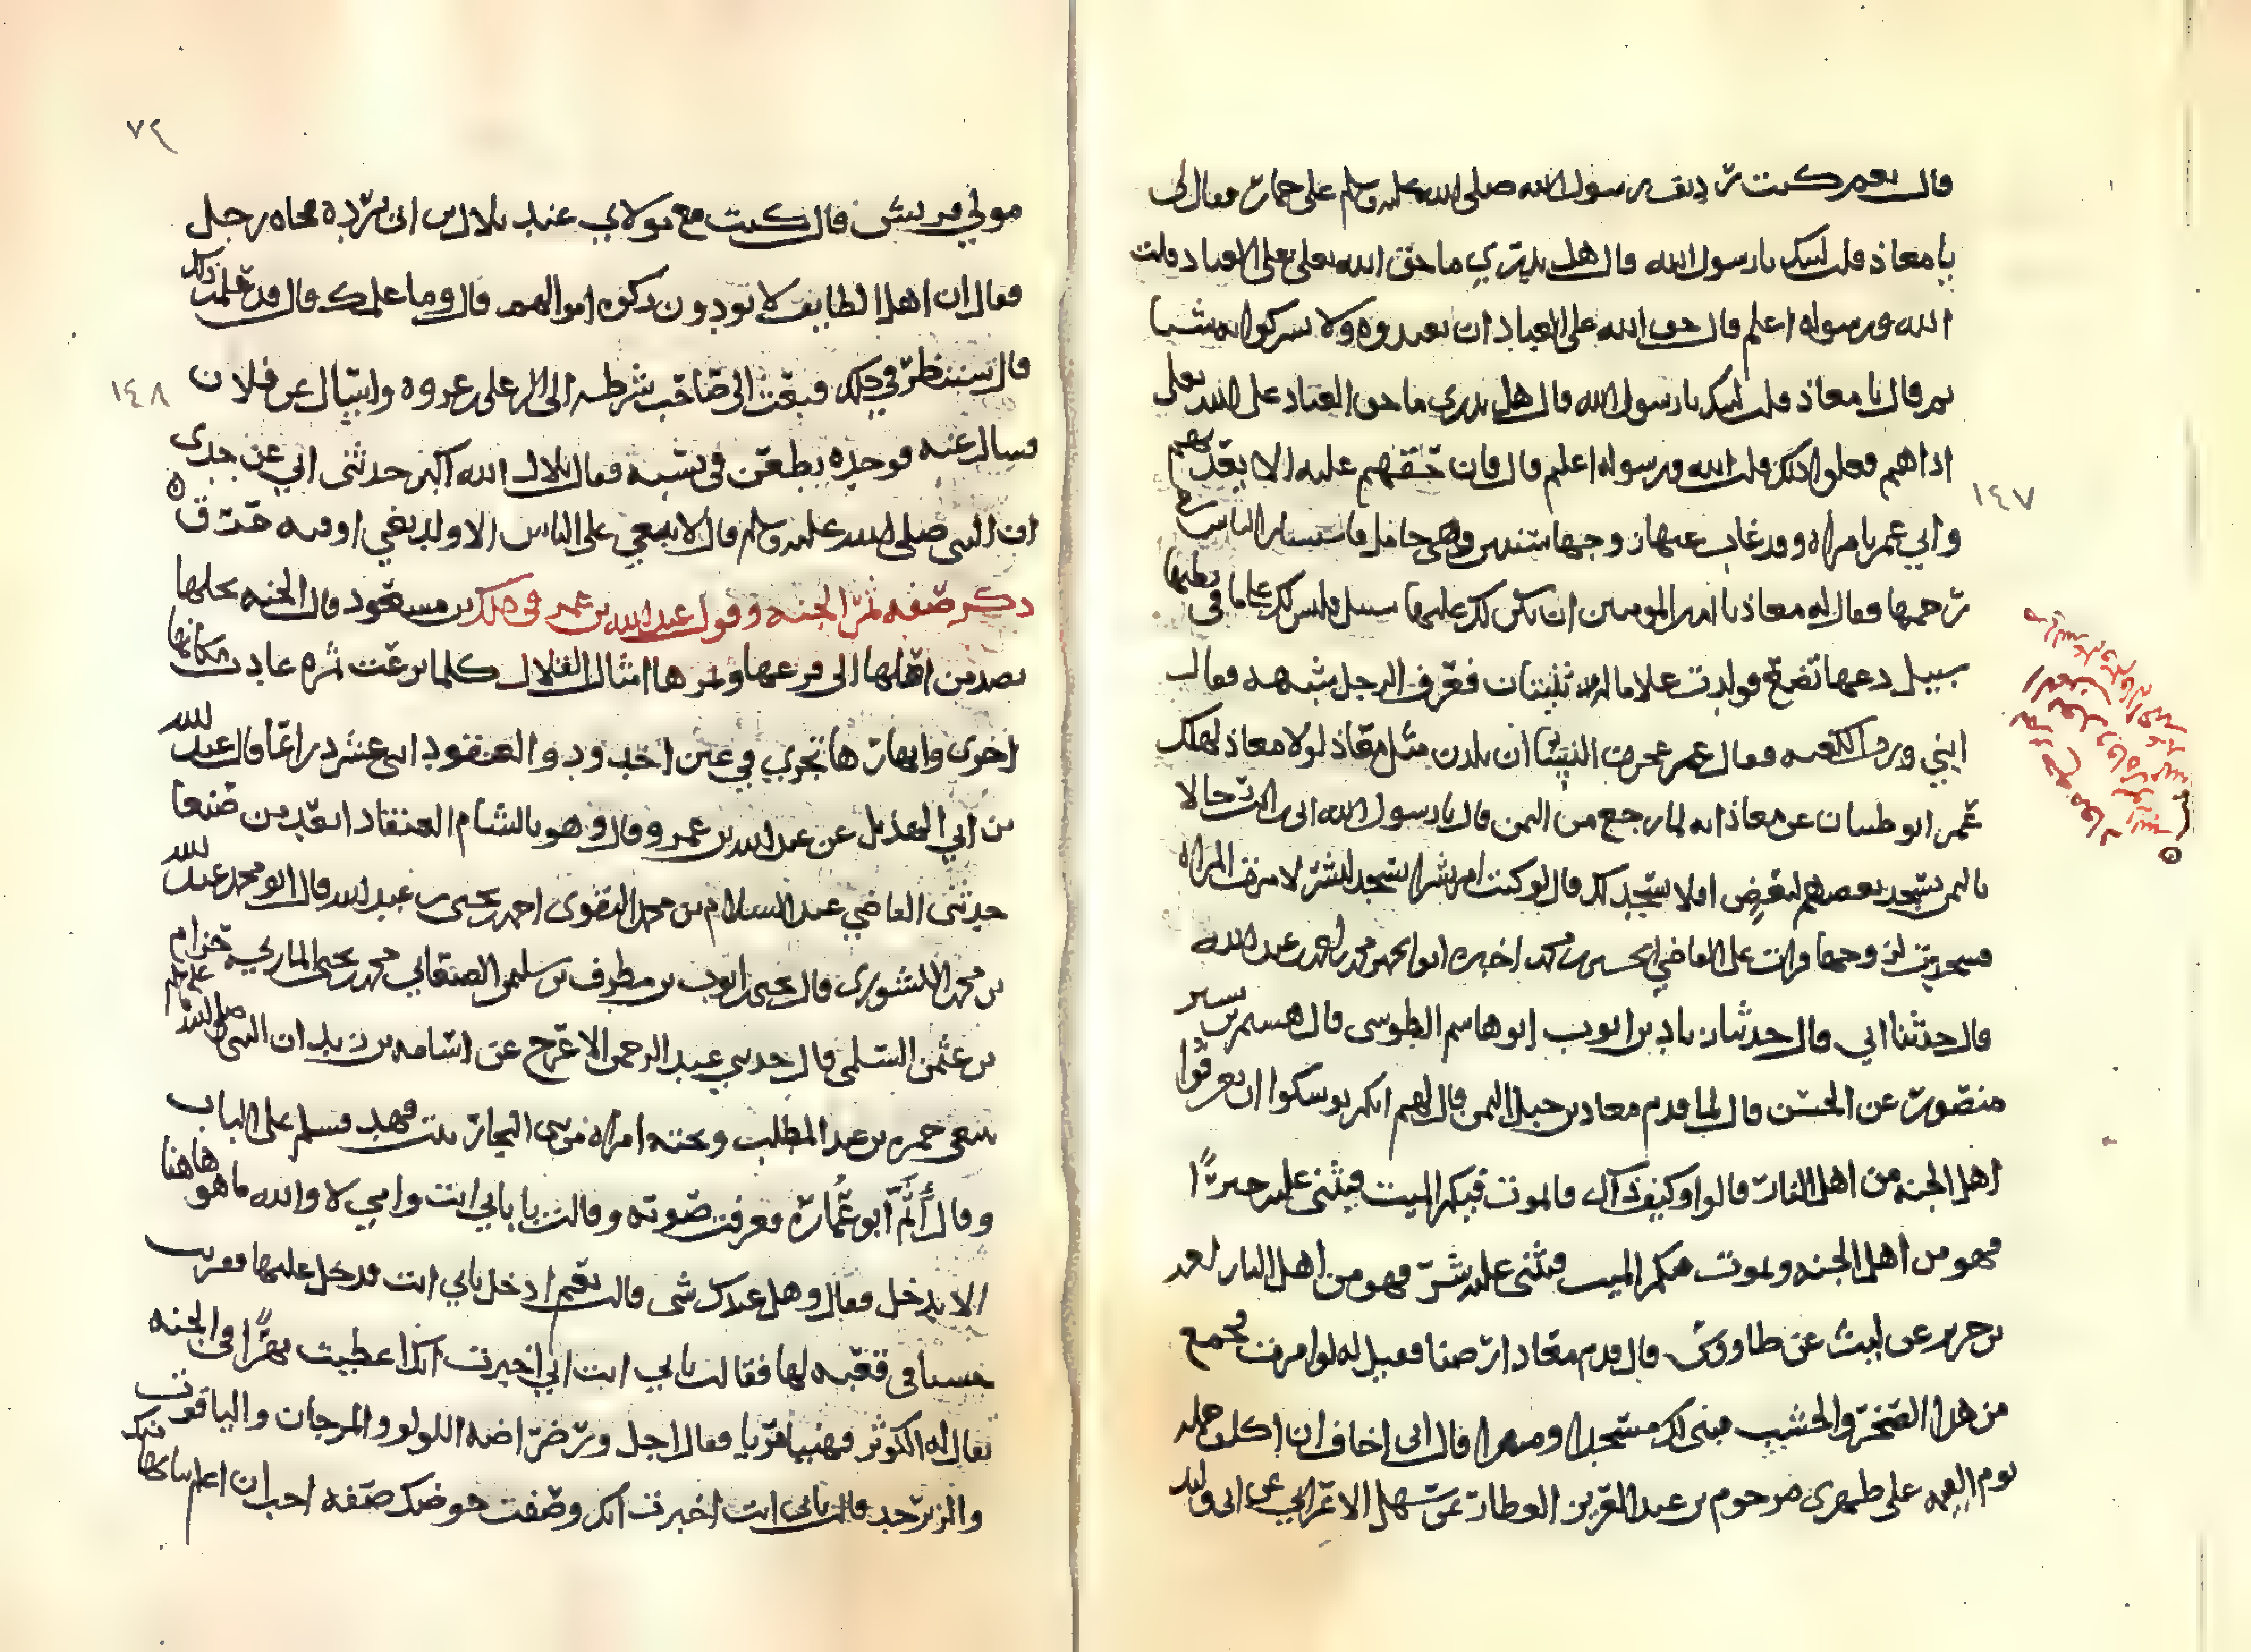 قال نعم كنت رديف رسول الله صلى الله عليه وسلم على حمار فقال لى
يا معاذ قلت لبيك يا رسول الله قال هل تدري ما حق الله تعلى على العباد قلت
الله ورسوله اعلم قال حق الله على العباد ان يعبدوه ولا يشركوا به شيا
ثم قال يا معاذ قلت لبيك يا رسول الله قال هل تدري ما حق العباد على الله تعلى
اذا هم فعلوا ذلك قلت الله ورسوله اعلم قال فان حقهم عليه الا يعذبهم
١٤٧
واتي عمر بامراة وقد غاب عنها زوجها سنتين وهي حامل فاستشار الناس في
رجمها فقال له معاذ يا امير المومنين ان يكن لك عليها سبيل فليس لك على ما في بطنها
سبيل دعها تضع فولدت غلاما له ثنيتان فعرف الرجل شبهه فقال
ابني ورب الكعبه فقال عمر عجزت النسا ان يلدن مثل معاذ لولا معاذ لهلك
عمر ابو ظبيان عن معاذ انه لما رجع من اليمن قال يا رسول الله اني رايت رجالا
باليمن يسجد بعضهم لبعض افلا نسجد لك قال لو كنت امر بشرا يسجد لبشر لامرت المراه
تسجد لزوجها قرات على القاضي الحسين بن محمد اخبره ابو محمد عبد الله
قال حدثنا ابي قال حدثنا زياد بن ايوب ابو هاشم الطوسى قال هشيم بن بشير
منصور عن الحسن قال لما قدم معاذ بن جبل اليمن قال لهم انكم يوشكوا ان تعرفوا
اهل الجنه من اهل النار قالوا وكيف ذاك قال يموت فيكم الميت فيثنى عليه خيرًا
فهو من اهل الجنه ويموت فيكم الميت فيثنى عليه شر فهو من اهل النار
بن حرير عن ليث عن طاووس قال قدم معاذ ارضنا فقيل له لو امرت فجمع
من هذا الصخر والخشب فبنى لك مسجدا قال انى اخاف ان اكلف حمله
يوم القيمه على ظهرى مرحوم بن عبد العزيز العطار عن سهل الاعرابي عن ابى
٧٢
مولي قريش قال كنت مع مولاي عند بلال بن ابى برده فجاه رجل
فقال ان اهل الطايف لا يودون زكوه اموالهم قال وما علمك قال قد علمت ذلك
١٤٨
قال سننظر في ذلك فبعث الى صاحب شرطه الى وسال عن فلان
فسال عنه فوجده يطعن في نسبه فقال بلال الله اكبر حدثنى ابي عن جدى
ان النبى صلى الله عليه وسلم قال لا يبغي على الناس الا ولد بغي او فيه عرق
ذكر صفه ثمر الجنه وقول عبد الله بن عمر في ذلك بن مسعود قال الجنه نخلها
نضد من اصلها الى فرعها وثمرها امثال القلال كلما نزعت ثمره عادت مكانها
اخرى وانهارها تجري في غير اخدود والعنقود اثنى عشر ذراعا قال عبد الله
بن ابي الهذيل عن عبد الله بن عمرو قال وهو بالشام العنقاد ابعد من صنعا
حدثنى القاضي عبد السلام بن محمد النقوى احمد بن يحيى بن عبد الله قال ابو محمد عبد الله
بن محمد الكشورى قال يحيى بن ايوب بن مطرف بن سليمن الصنعاني محمد بن يحيى الماربي حزام
بن عثمن السلمى قال حدثني عبد الرحمن الاعرج عن اسامه بن زيد ان النبى صلى الله عليه وسلم
حمزه بن عبد المطلب وتحته امراه من بنى النجار بنت قهد فسلم على الباب
وقال أثم ابو عماره فعرفت صوته وقالت يا بابي انت وامي لا والله ما هو هاهنا
الا تدخل فقال وهل عندك شى قالت نعم ادخل بابي انت فدخل عليها فقربت
حيسا في قعبه لها فقالت بابي انت اني اخبرت انك اعطيت نهرًا في الجنه
يقال له الكوثر فهنيا مريا فقال اجل ورضراضه اللولو والمرجان والياقوت
والزبرجد قالت بابي انت اخبرت انك وصفت حوضك صفه احب ان اعلم